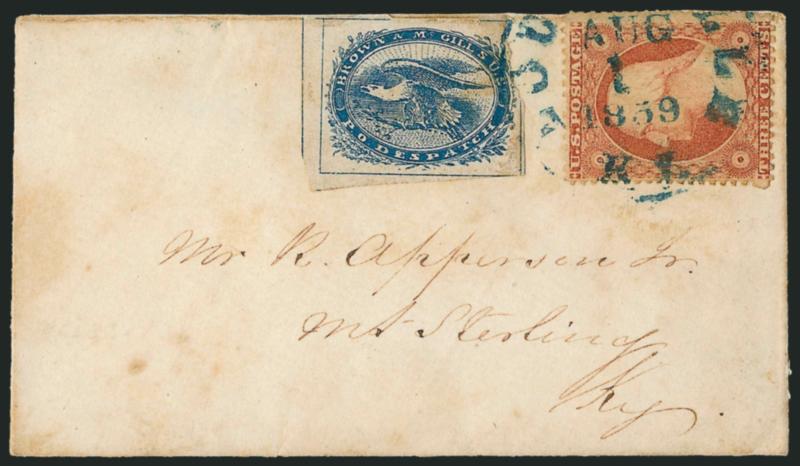 BROWN & McGILL'S U.S.
P.O. DESPATCH
AUG
1
1859
U.S. POSTAGE
THREE CENTS
Mr R. Apperson Jr.
Mt Sterling
Ky